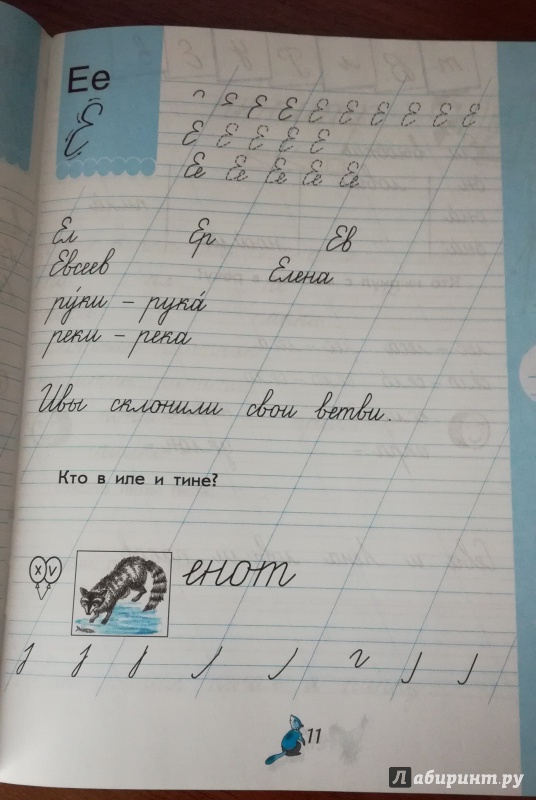 Ее
Е Е Е Е Е Е Е Е
Е
Е Е Е Е Е
Ее Ее Ее Ее Ее
Ел Ер Ев
Евсеев Елена
ру́ки – рука́
реки – река
Ивы склонили свои ветви.
Кто в иле и тине?
х v
енот
11
Лабиринт.ру